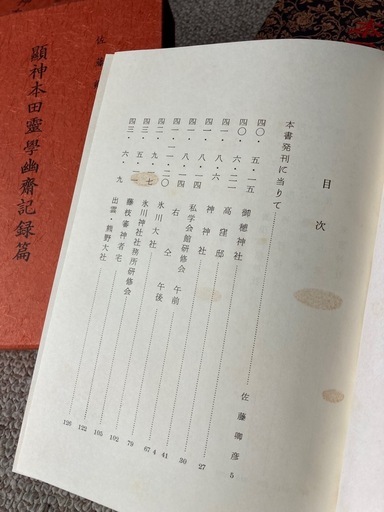 佐藤
顯神本田靈學幽齋記録篇
目次
本書発刊に当りて……佐藤卿彦 5
四〇・五・一五 御穂神社……27
四〇・六・二一 高窪邸……30
四一・八・一四 神神社……41
四一・八・一四 私学会館研修会 午前……67
四一・一一・二〇 右仝 午後……79
四二・九・七 氷川大社……102
四三・五・ 氷川神社社務所研修会……105
四三・六・九 藤枝審神者宅……122
出雲・熊野大社……126